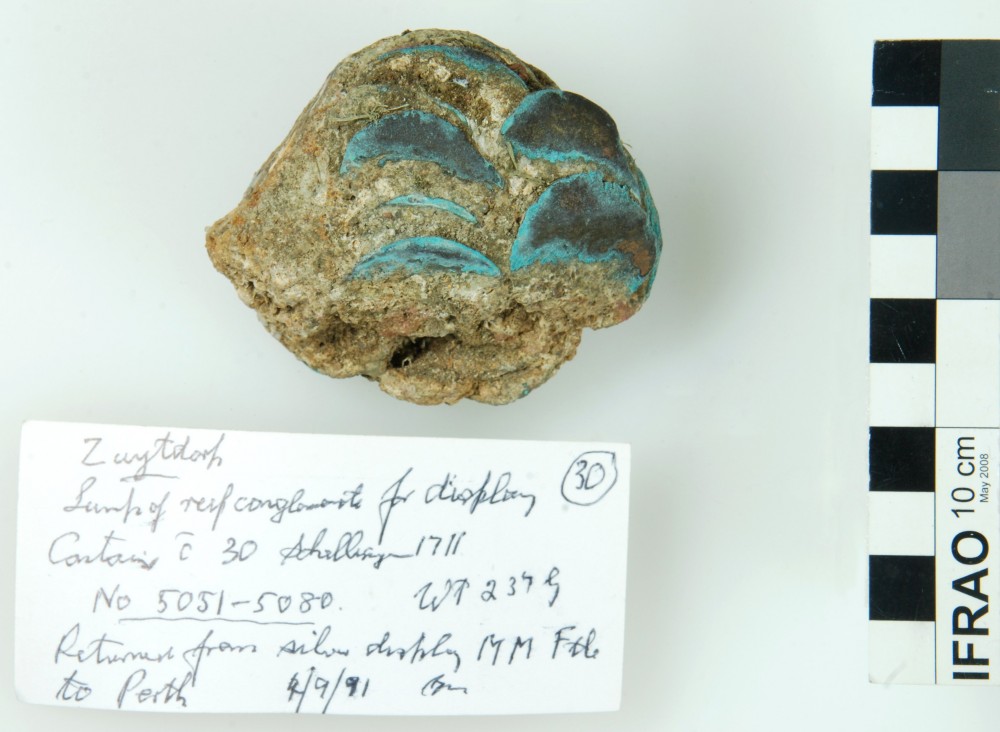 Zuytdorp
Lump of reef conglomerate for display
30
Contains c̄ 30 Schellingen 1711
No 5051-5080. WT 237 g
Returned from silver display MM Ftle
to Perth 4/9/91
IFRAO 10 cm
May 2008